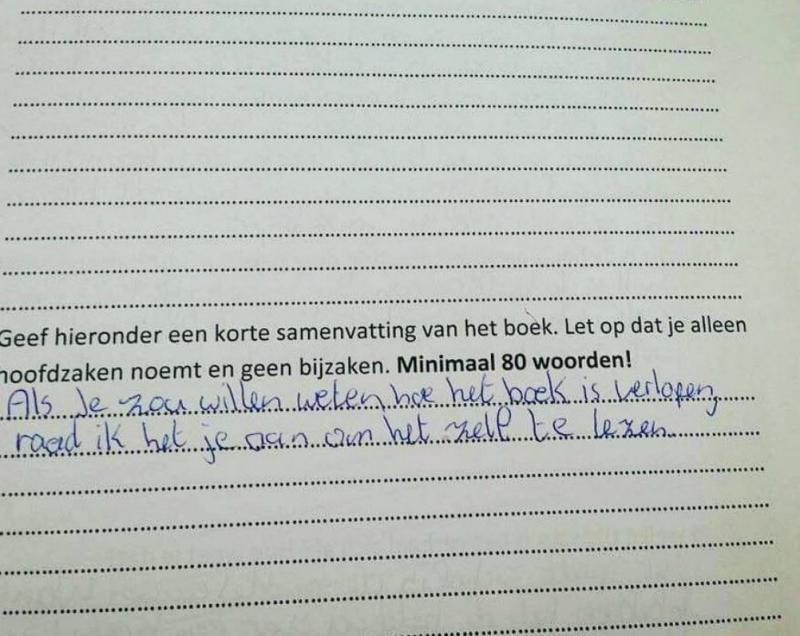 Geef hieronder een korte samenvatting van het boek. Let op dat je alleen
hoofdzaken noemt en geen bijzaken. Minimaal 80 woorden!
Als Je zou willen weten hoe het boek is verlopen,
raad ik het je aan om het zelf te lezen